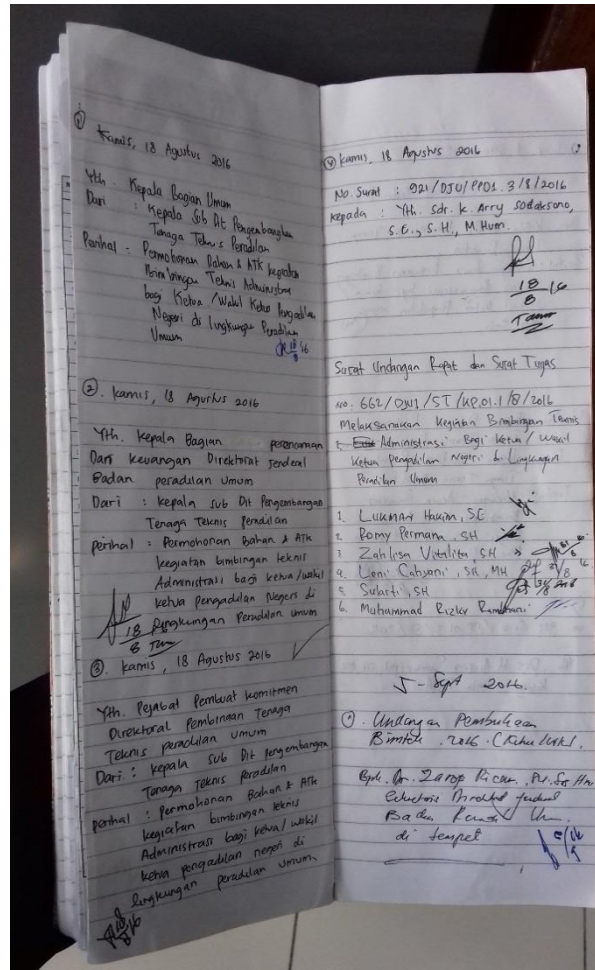 ① Kamis, 18 Agustus 2016
Yth. Kepala Bagian Umum
Dari : Kepala Sub Dit Pengembangan
Tenaga Teknis Peradilan
Perihal : Permohonan Bahan & ATK kegiatan
Bimbingan Teknis Administrasi
bagi Ketua / Wakil Ketua Pengadilan
Negeri di lingkungan Peradilan
Umum
18/8 16
②. Kamis, 18 Agustus 2016
Yth. Kepala Bagian perencanaan
Dan keuangan Direktorat Jenderal
Badan peradilan umum
Dari : kepala sub Dit Pengembangan
Tenaga Teknis Peradilan
perihal : Permohonan Bahan & ATK
kegiatan bimbingan teknis
Administrasi bagi ketua/wakil
ketua Pengadilan Negeri di
lingkungan Peradilan umum
18
8
③. kamis, 18 Agustus 2016
Yth. Pejabat Pembuat komitmen
Direktorat Pembinaan Tenaga
Teknis peradilan umum
Dari : kepala sub Dit pengembangan
Tenaga teknis peradilan
perihal : Permohonan Bahan & ATK
kegiatan bimbingan teknis
Administrasi bagi ketua/wakil
ketua pengadilan negeri di
lingkungan peradilan umum
18/8/16
④ kamis, 18 Agustus 2016
No. Surat : 921/DJU/PP01.3/8/2016
kepada : Yth. Sdr. K. Arry Sodaksono,
S.E., S.H., M.Hum.
18/8 16
Surat Undangan Rapat dan Surat Tugas
No. 662/DJU1/ST/KP.01.1/8/2016
Melaksanakan kegiatan Bimbingan Teknis
Administrasi Bagi Ketua / Wakil
Ketua Pengadilan Negeri di Lingkungan
Peradilan Umum
1. LUKMAN Hakim, SE
2. Romy Permana, SH
3. Zahlisa Vitalita, SH
4. Leni Cahyani, SH, MH
5. Sularti, SH
6. Muhammad Rizky Ramdhani
5 - Sept 2016.
Undangan Pembukaan
Bimtek 2016.
Bpk. Dr. Zarof Ricar,
di tempat